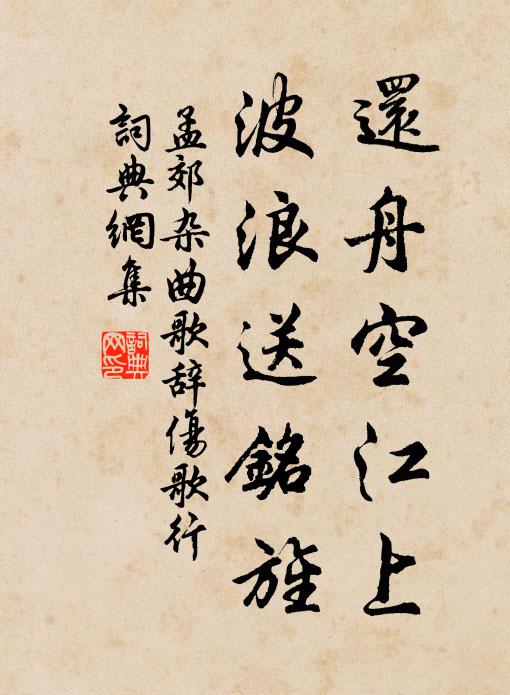 還舟空江上
波浪送銘旌
孟郊杂曲歌辞傷歌行
詞典網集
詞典
网印